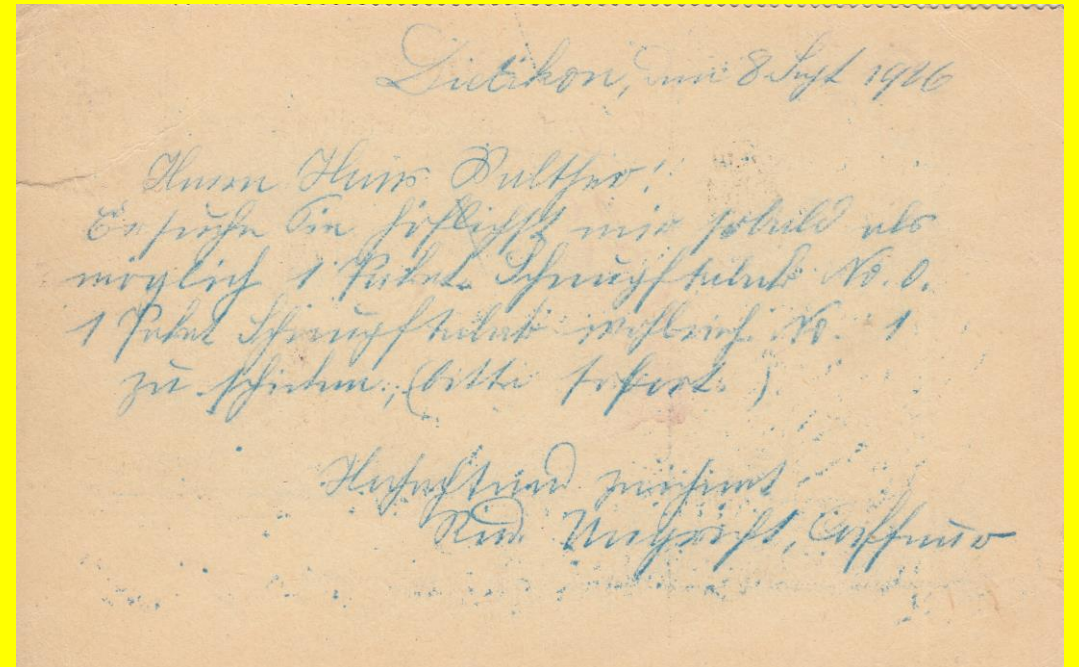 Dietikon, den 8 Sept 1926
Herrn Hans Walther!
Ersuche Sie höflichst mir sobald als
möglich 1 Paket Schnupftabak No. 0.
1 Paket Schnupftabak No. 1
zu schicken, (bitte sofort.)
Hochachtend zeichnet
Rud. Ungricht, Coiffeur